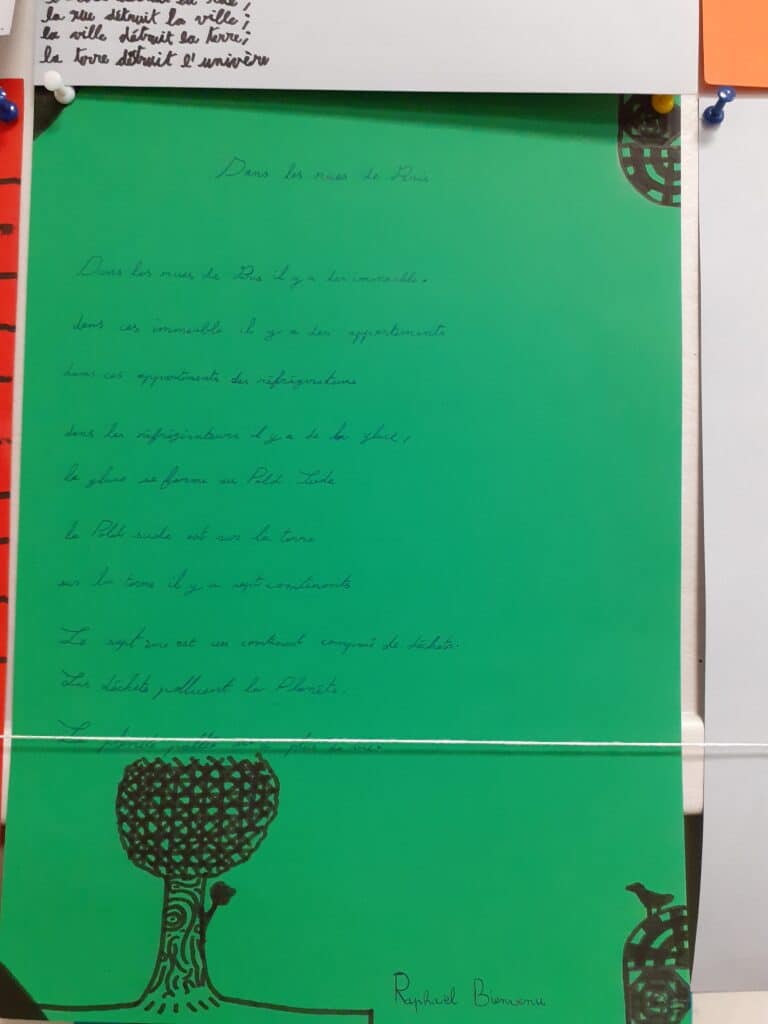 la rue détruit la ville;
la ville détruit la terre;
la terre détruit l'univère
Dans les rues de Paris
Dans les rues de Paris il y a des immeuble.
dans ces immeuble il y a des appartements
dans ces appartements des réfrégirateurs
dans les réfrégirateurs il y a de la glace,
la glace se forme au Pold Sude
le Pold sude est sur la terre
sur la terre il y a sept continents
Le sept est un continent composé de déchets.
Les déchets polluent la Planète.
La planète polluée plus de vie.
Raphaël Bienvenu